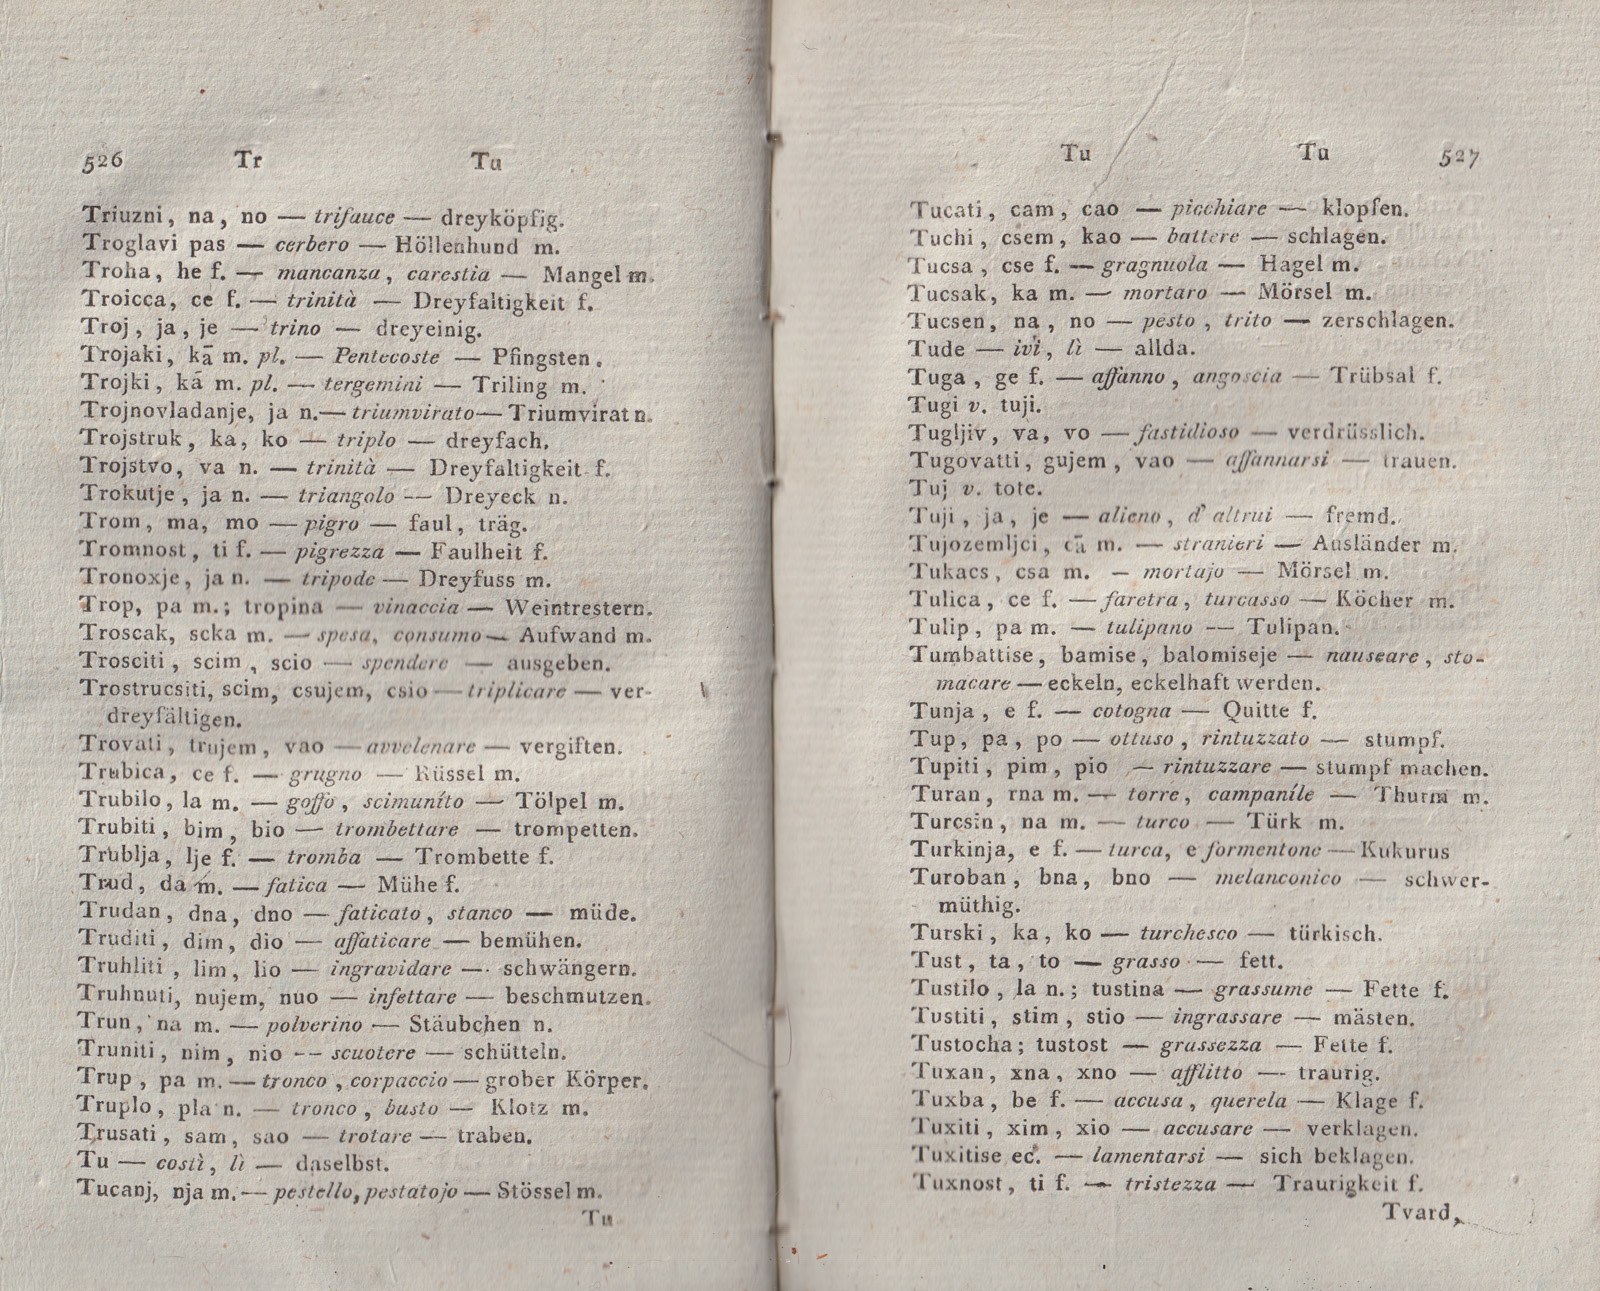 526 Tr Tu
Triuzni, na, no — trifauce — dreyköpfig.
Troglavi pas — cerbero — Höllenhund m.
Troha, he f. — mancanza, carestia — Mangel m.
Troicca, ce f. — trinità — Dreyfaltigkeit f.
Troj, ja, je — trino — dreyeinig.
Trojaki, kā m. pl. — Pentecoste — Pfingsten.
Trojki, kā m. pl. — tergemini — Triling m.
Trojnovladanje, ja n. — triumvirato — Triumvirat n.
Trojstruk, ka, ko — triplo — dreyfach.
Trojstvo, va n. — trinità — Dreyfaltigkeit f.
Trokutje, ja n. — triangolo — Dreyeck n.
Trom, ma, mo — pigro — faul, träg.
Tromnost, ti f. — pigrezza — Faulheit f.
Tronoxje, ja n. — tripode — Dreyfuss m.
Trop, pa m.; tropina — vinaccia — Weintrestern.
Troscak, scka m. — spesa, consumo — Aufwand m.
Trosciti, scim, scio — spendere — ausgeben.
Trostrucsiti, scim, csujem, csio — triplicare — ver-
dreyfältigen.
Trovati, trujem, vao — avvelenare — vergiften.
Trubica, ce f. — grugno — Rüssel m.
Trubilo, la m. — goffo, scimunito — Tölpel m.
Trubiti, bim, bio — trombettare — trompetten.
Trublja, lje f. — tromba — Trombette f.
Trud, da m. — fatica — Mühe f.
Trudan, dna, dno — faticato, stanco — müde.
Truditi, dim, dio — affaticare — bemühen.
Truhliti, lim, lio — ingravidare — schwängern.
Truhnuti, nujem, nuo — infettare — beschmutzen.
Trun, na m. — polverino — Stäubchen n.
Truniti, nim, nio — scuotere — schütteln.
Trup, pa m. — tronco, corpaccio — grober Körper.
Truplo, pla n. — tronco, busto — Klotz m.
Trusati, sam, sao — trotare — traben.
Tu — costì, lì — daselbst.
Tucanj, nja m. — pestello, pestatojo — Stössel m.
Tu
Tu Tu 527
Tucati, cam, cao — picchiare — klopfen.
Tuchi, csem, kao — battere — schlagen.
Tucsa, cse f. — gragnuola — Hagel m.
Tucsak, ka m. — mortaro — Mörsel m.
Tucsen, na, no — pesto, trito — zerschlagen.
Tude — ivi, lì — allda.
Tuga, ge f. — affanno, angoscia — Trübsal f.
Tugi v. tuji.
Tugljiv, va, vo — fastidioso — verdrüsslich.
Tugovatti, gujem, vao — affannarsi — trauen.
Tuj v. tote.
Tuji, ja, je — alieno, d' altrui — fremd.
Tujozemljci, cā m. — stranieri — Ausländer m.
Tukacs, csa m. — mortajo — Mörsel m.
Tulica, ce f. — faretra, turcasso — Köcher m.
Tulip, pa m. — tulipano — Tulipan.
Tumbattise, bamise, balomiseje — nauseare, sto-
macare — eckeln, eckelhaft werden.
Tunja, e f. — cotogna — Quitte f.
Tup, pa, po — ottuso, rintuzzato — stumpf.
Tupiti, pim, pio — rintuzzare — stumpf machen.
Turan, rna m. — torre, campanile — Thurm m.
Turcsin, na m. — turco — Türk m.
Turkinja, e f. — turca, e formentone — Kukurus
Turoban, bna, bno — melanconico — schwer-
müthig.
Turski, ka, ko — turchesco — türkisch.
Tust, ta, to — grasso — fett.
Tustilo, la n.; tustina — grassume — Fette f.
Tustiti, stim, stio — ingrassare — mästen.
Tustocha; tustost — grassezza — Fette f.
Tuxan, xna, xno — afflitto — traurig.
Tuxba, be f. — accusa, querela — Klage f.
Tuxiti, xim, xio — accusare — verklagen.
Tuxitise ec. — lamentarsi — sich beklagen.
Tuxnost, ti f. — tristezza — Traurigkeit f.
Tvard,